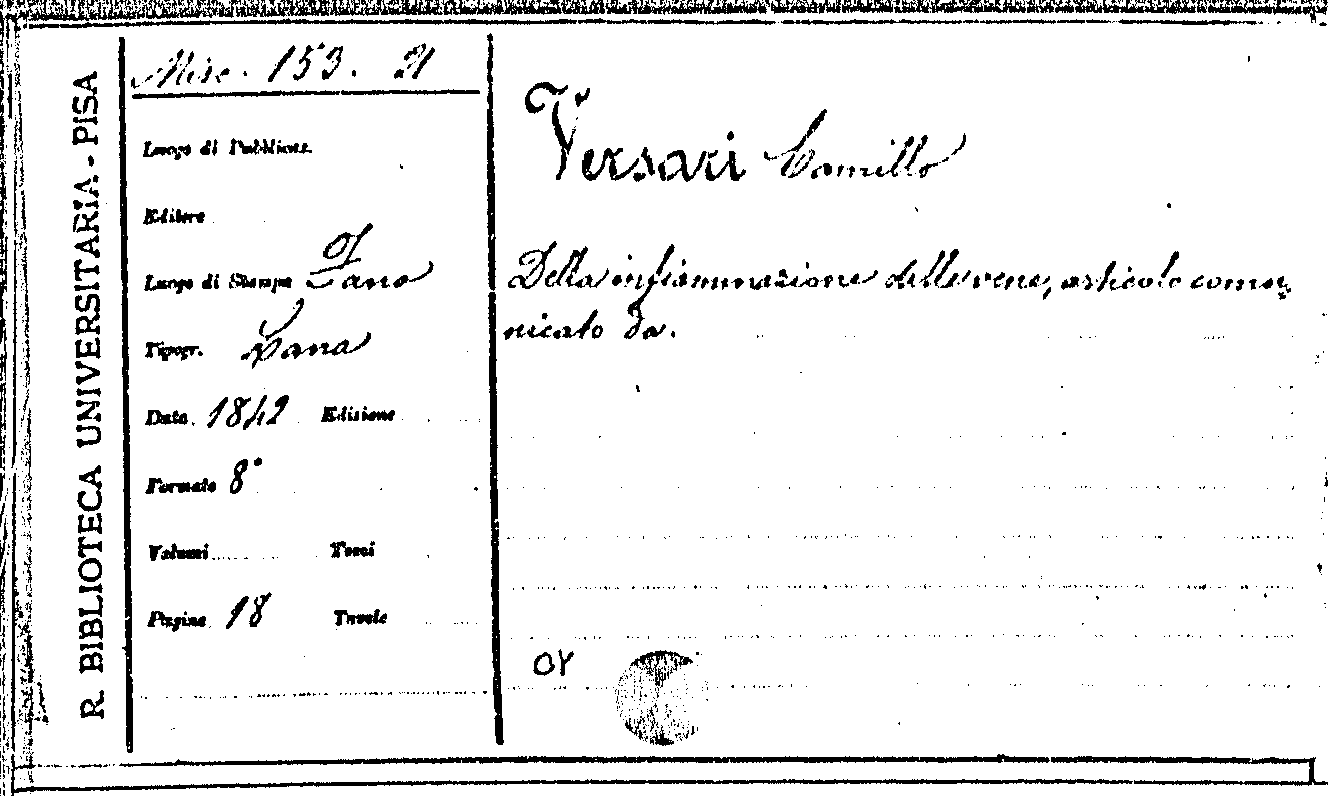 R. BIBLIOTECA UNIVERSITARIA - PISA
Misc. 153. 21
Luogo di Pubblicaz.
Editore
Luogo di Stampa Fano
Tipogr. Lana
Data 1842 Edizione
Formato 8°
Volumi Tomi
Pagine 18 Tavole
Versari Camillo
Della infiammazione delle vene, articolo comu-
nicato da.
OY